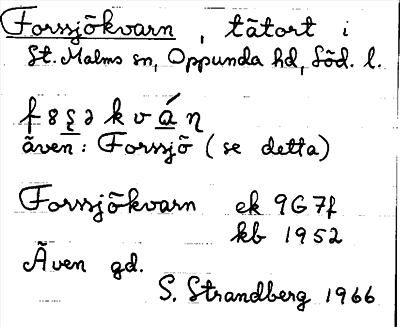 Forssjökvarn, tätort i
St. Malms sn, Oppunda hd, Söd. l.
även: Forssjö (se detta)
Forssjökvarn ek 9G7f
kb 1952
Även gd.
S. Strandberg 1966